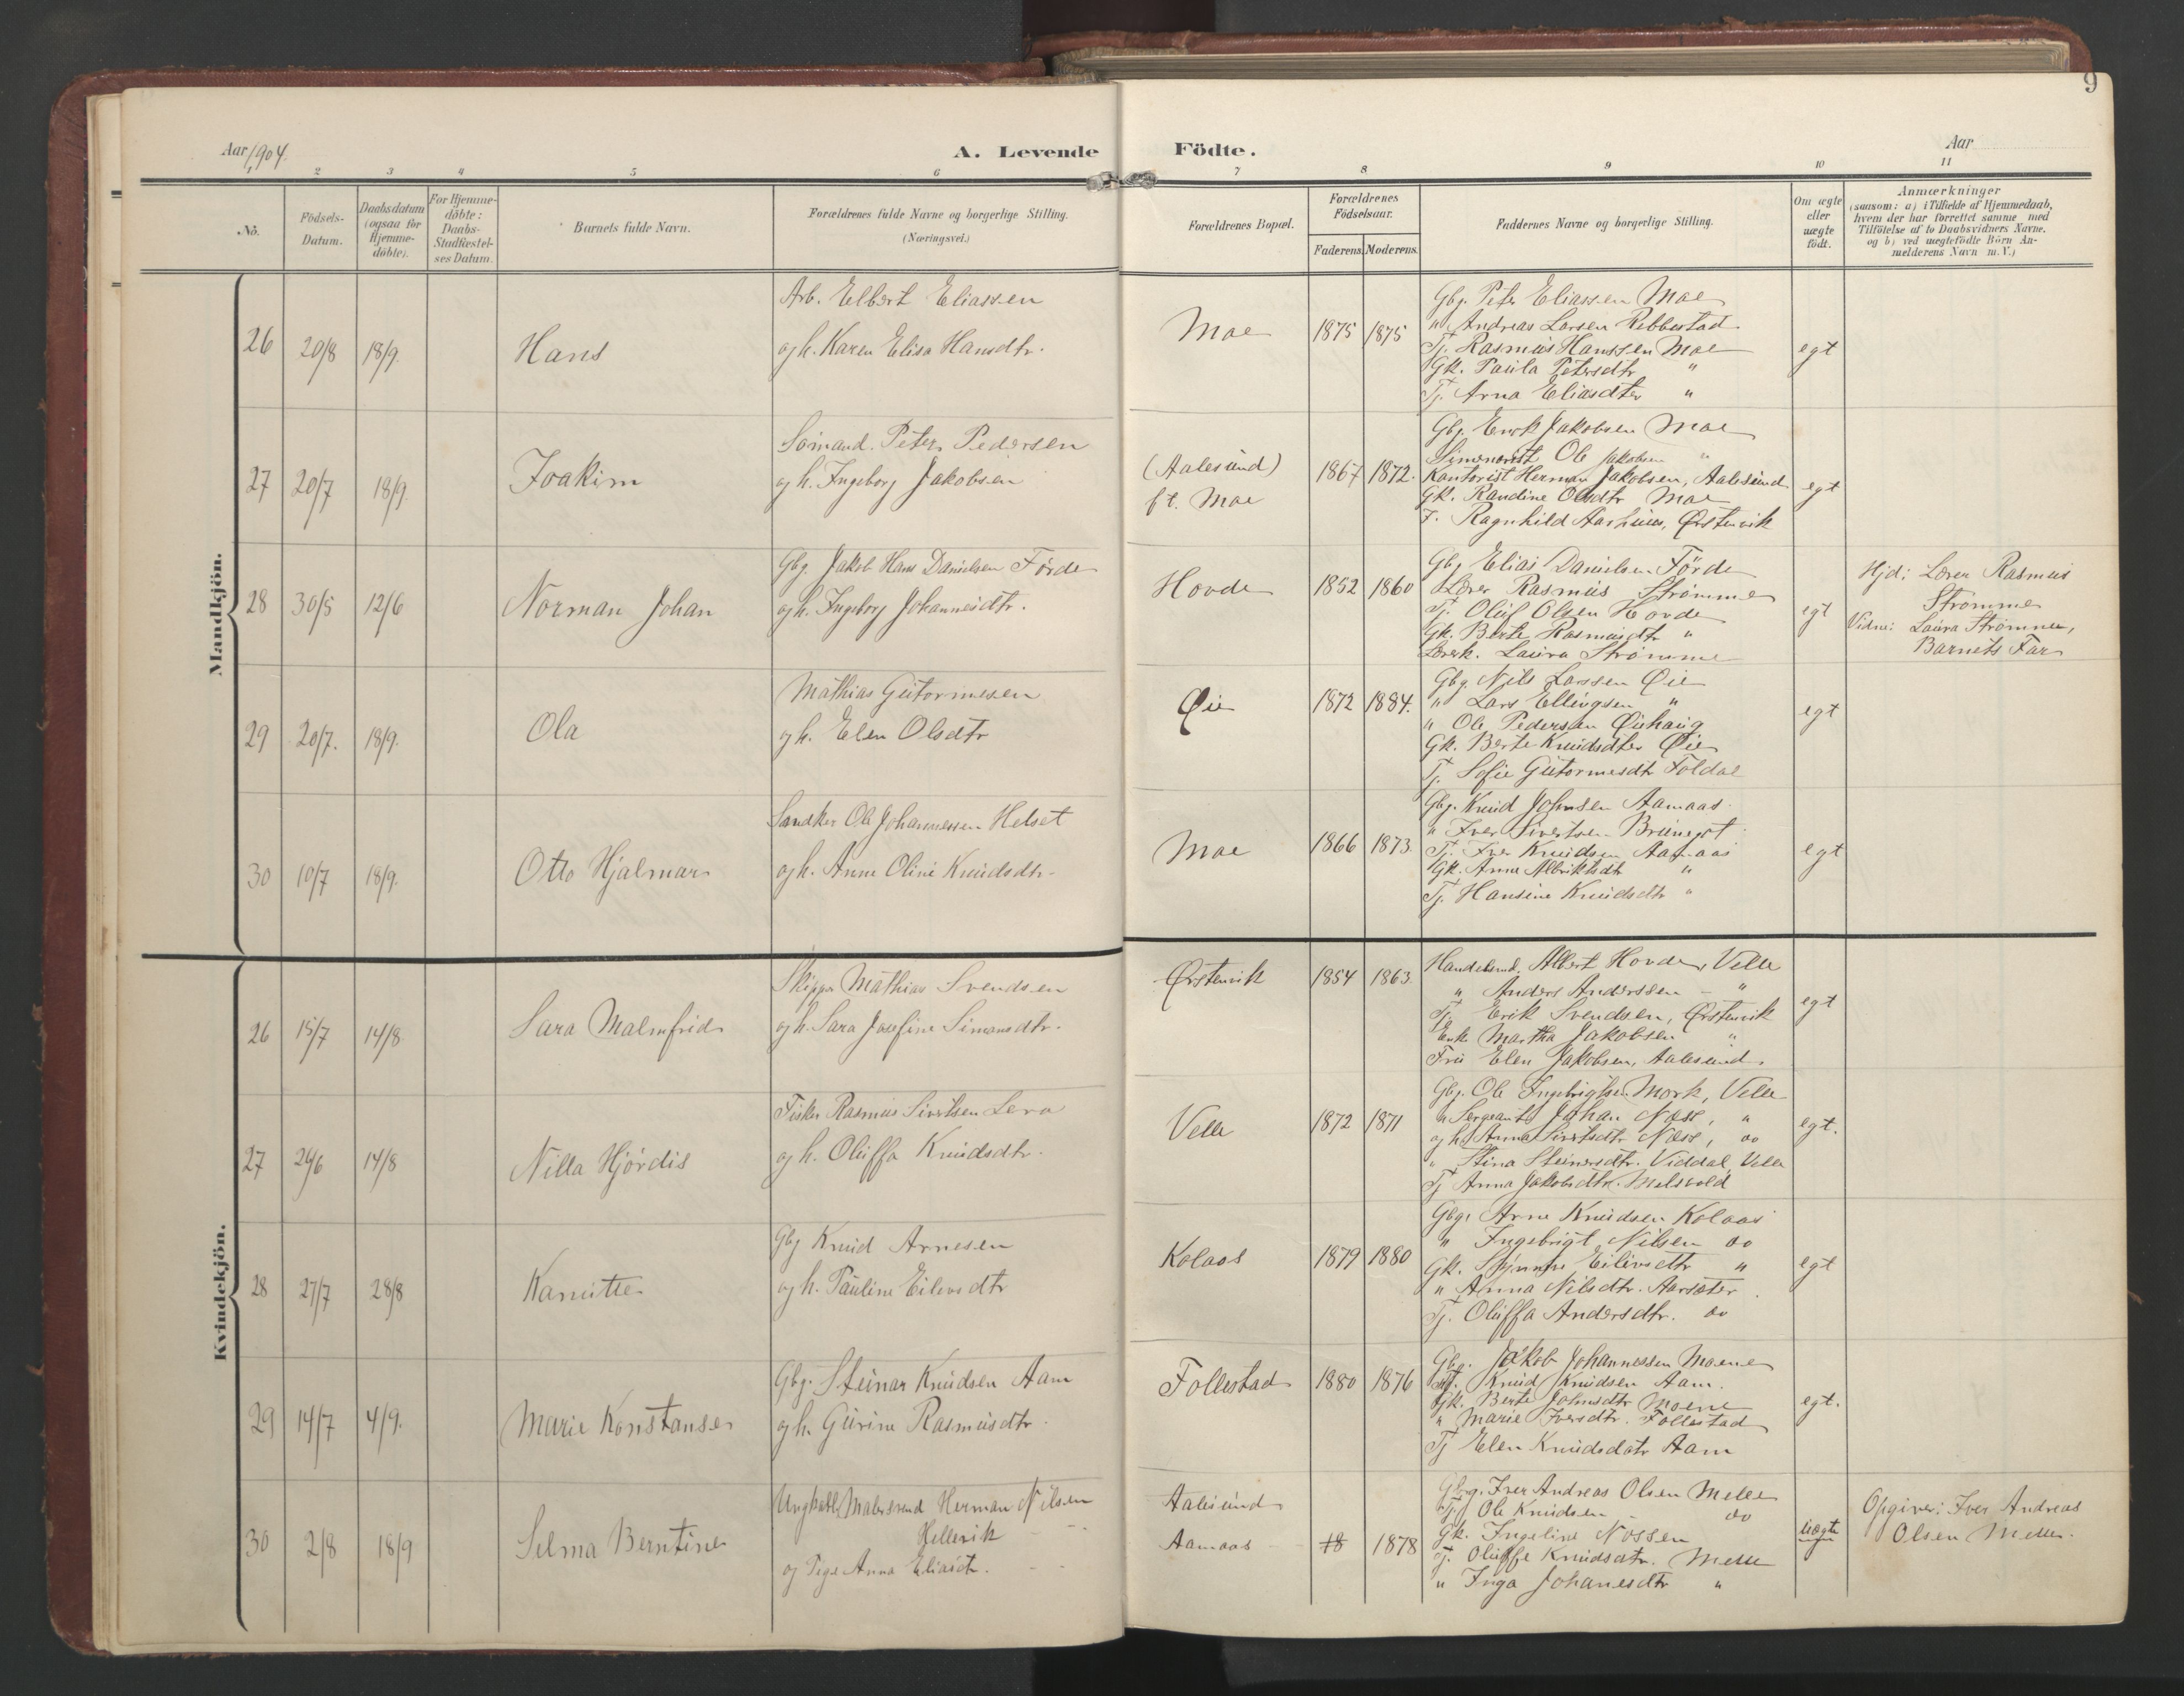 9
Aar 1904.
A. Levende Födte.
Aar
1 2 3 4 5 6 7 8 9 10 11
No.
Födsels-Datum.
Daabsdatum (ogsaa for Hjemme-döbte).
For Hjemme-döbte: Daabs-Stadfæstel-ses Datum.
Barnets fulde Navn.
Forældrenes fulde Navne og borgerlige Stilling.
(Næringsvei.)
Forældrenes Bopæl.
Forældrenes Födselsaar.
Faderens. Moderens.
Faddernes Navne og borgerlige Stilling.
Om ægte eller uægte födt.
Anmærkninger
(saasom: a) i Tilfælde af Hjemmedaab,
hvem der har forrettet samme med
Tilföielse af to Daabsvidners Navne,
og b) ved uægtefödte Börn An-
melderens Navn m. V.)
Mandkjön.
26 20/8 18/9. Hans
Arb. Elbert Eliassen
og h. Karen Elisa Hansdtr.
Moe 1875 1875
Gbg. Peter Eliassen Moe
" Andreas Larsen Ribbestad
Tj. Rasmus Hanssen Moe
Gk. Paula Petersdtr "
Tj. Arna Eliasdter "
egt
27 20/7 18/9. Joakim
Sømand. Peter Pedersen
og h. Ingeborg Jakobsen
(Aalesund)
ft. Moe
1867 1872.
Gbg. Erik Jakobsen Moe
Ole Jakobsen "
Kontorist Herman Jakobsen, Aalesund
Gk. Randine Olsdtr Moe
F. Ragnhild Aarhuus, Ørstenvik
egt
28 30/5 12/6 Norman Johan
Gbg. Jakob Hans Danielsen Förde
og h. Ingeborg Johannesdtr.
Hovde 1852 1860
Gbg Elias Danielsen Förde
Lærer Rasmus Strømme
Tj. Oluf Olsen Hovde
Gk. Berte Rasmusdtr "
Lærerk. Laura Strømme
egt
Hjd: Lærer Rasmus
Strømme
Vidne: Laura Strømme,
Barnets Far
29 20/7. 18/9. Ola
Mathias Gutormesen
og h. Elen Olsdtr
Øie 1872 1884.
Gbg. Nils Larssen Øie
" Lars Ellingsen "
" Ole Pedersen Øiehaug
Gk. Berte Knudsdter Øie
Tj. Sofie Gutormesdtr Foldal
egt
30 10/7 18/9. Otto Hjalmar
Snedker Ole Johannessen Helset
og h. Anne Oline Knudsdtr.
Moe 1866 1873.
Gbg. Knud Johnsen Aamaas
" Iver Sivertsen
Tj. Iver Knudsen Aamaas
Gk. Anne Albriktsdtr "
Tj. Hansine Knudsdtr "
egt
Kvindekjön.
26 15/7 14/8 Sara Malmfrid
Skipper Mathias Svendsen
og h. Sara Josefine Simonsdtr.
Ørstenvik 1854 1863.
Handelsmd. Albert Hovde, Velle
" Anders Anderssen - "
Tj. Erik Svendsen, Ørstenvik
Enke Martha Jakobsen "
Fru Elen Jakobsen, Aalesund
egt
27 29/6 14/8 Nilla Hjørdis
Fisker Rasmus Sivertsen Leva
og h. Oluffa Knudsdtr.
Velle 1872 1871
Gbg. Ole Ingebrigtsen Mork, Velle
" Sergeant Johan Næss, "
og h. Anna Sivertsdtr Næss, do
" Stina Steinersdtr. Viddal, Velle
Tj Anna Jakobsdtr. Melsvold
egt.
28 27/7 28/8 Kanutte
Gbg Knud Arnesen
og h. Pauline Eilevsdtr
Kolaas 1879 1880
Gbg. Arne Knudsen Kolaas
" Ingebrigt Nilsen do
Gk. Synnøve Eilevsdtr "
" Anna Nilsdtr. Aarsæter
Tj. Oluffa Andersdtr. do
egt
29 14/7 4/9. Marie Konstanse
Gbg. Steinar Knudsen Aam
og h. Gurine Rasmusdtr.
Follestad 1880 1876
Gbg. Jakob Johannessen Moene
Tj. Knud Knudsen Aam.
Gk. Berte Johnsdtr Moene
" Marie Iversdtr. Follestad
Tj Elen Knudsdatr Aam
egt.
30 2/8 18/9 Selma Berntine
Ungkarl Malersvend Herman Nilsen
Hellevik
og Pige Anna Eliasdtr.
Aalesund
Aamaas
18 1878
Gbg. Iver Andreas Olsen Melle
Tj. Ole Knudsen do
Gk. Ingeline Nossen
Tj. Oluffe Knudsdtr. Melle
" Inga Johanesdtr "
uægte
Opgiver: Iver Andreas
Olsen Melle.